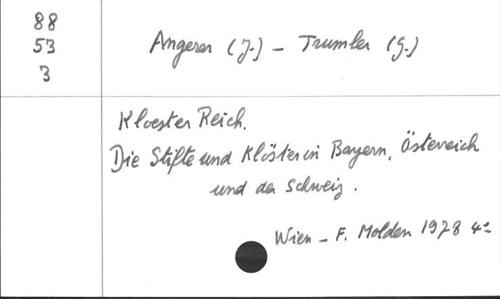 88
53
3
Angerer (J.) - Trumler (G.)
Kloester Reich.
Die Stifte und Klöster in Bayern, Österreich
und der Schweiz.
Wien - F. Molden 1978 4°